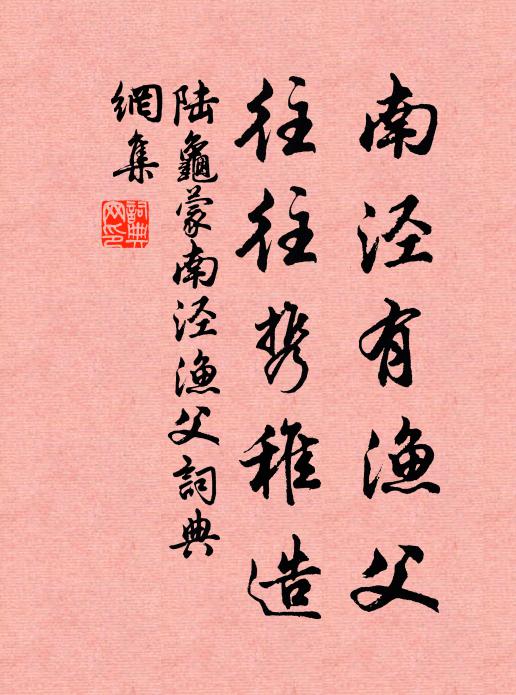 南泾有渔父
往往携稚造
陆龜蒙南泾渔父詞典
網集
詞典
网印